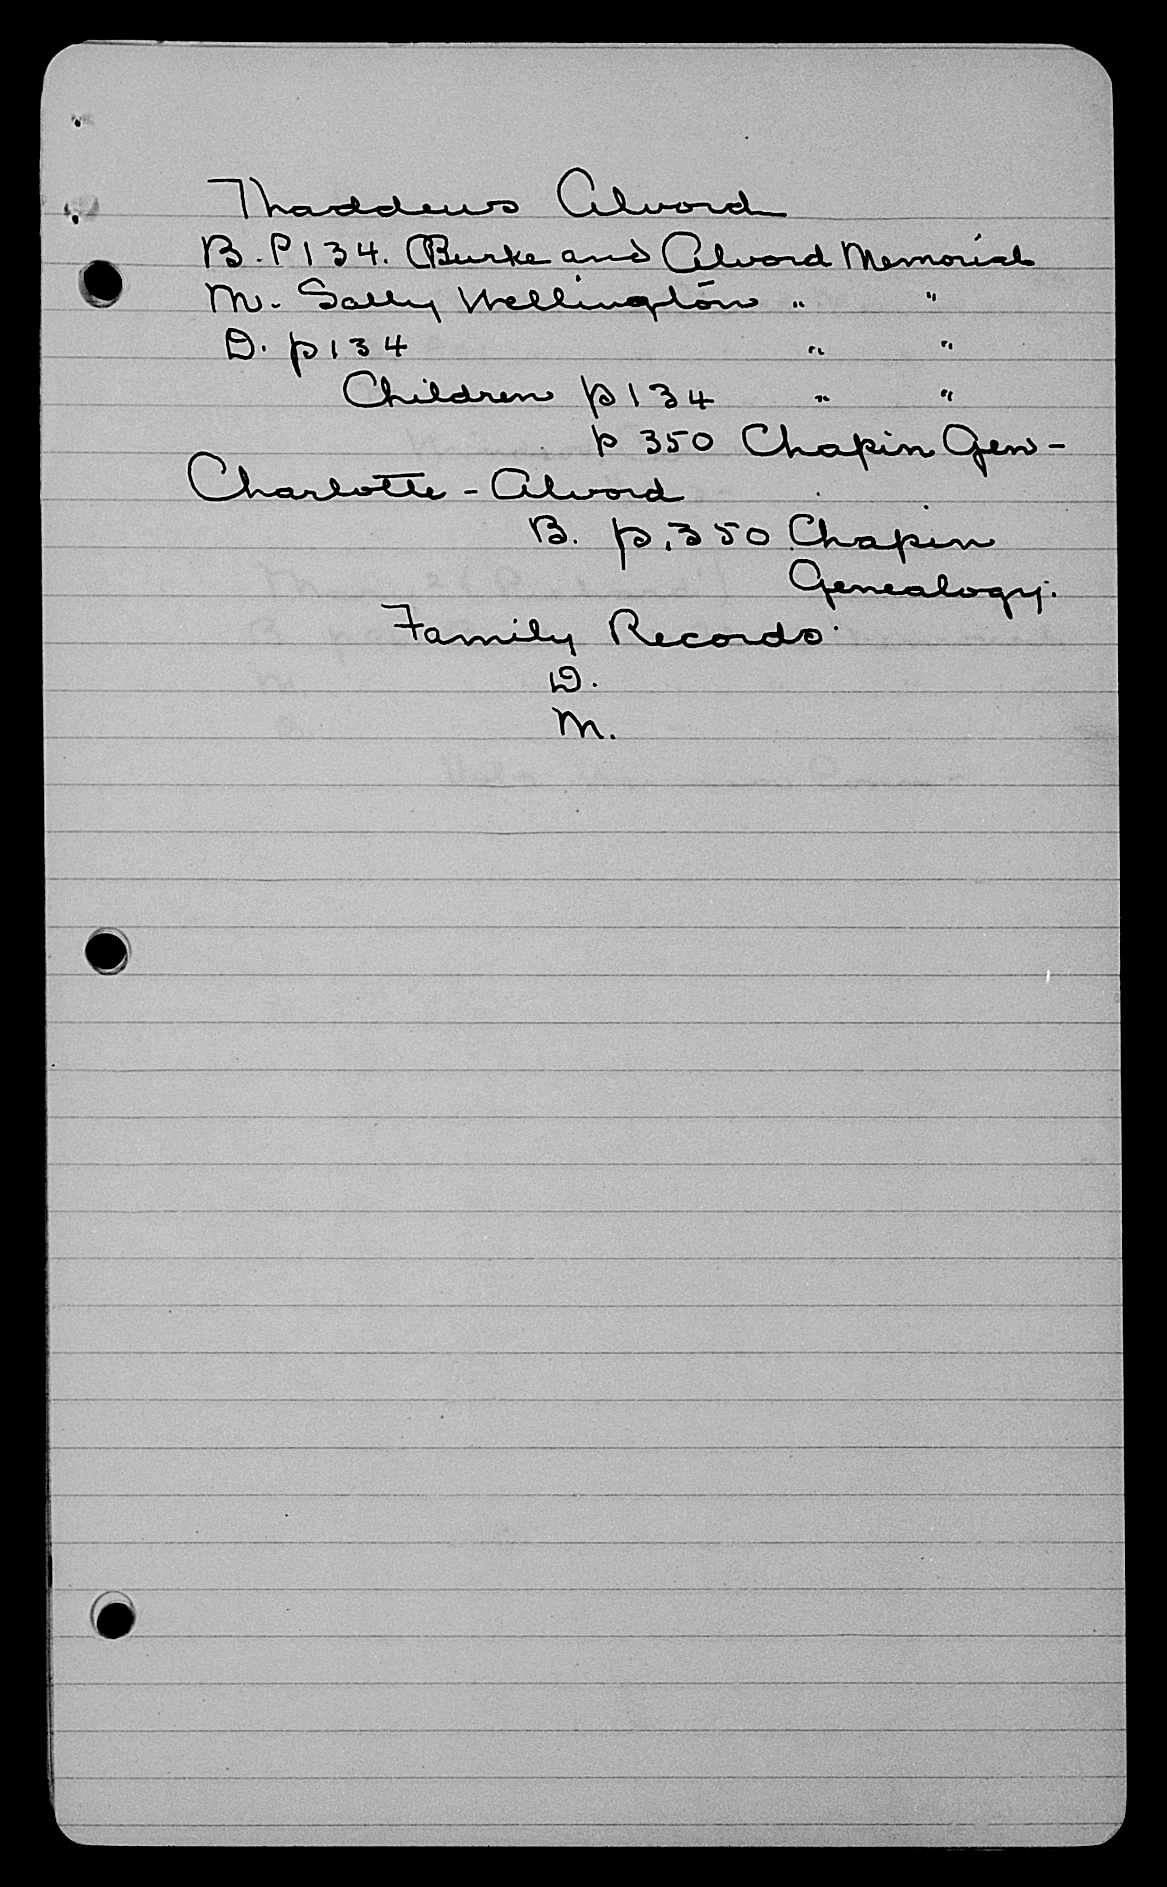 Thaddeus Alvord
B. P 134. Burke and Alvord Memorial
M. Sally Wellington " "
D. p 134 " "
Children p 134 " "
p 350 Chapin Gen-
Charlotte - Alvord
B. p. 350 Chapin
Genealogy.
Family Records.
D.
M.